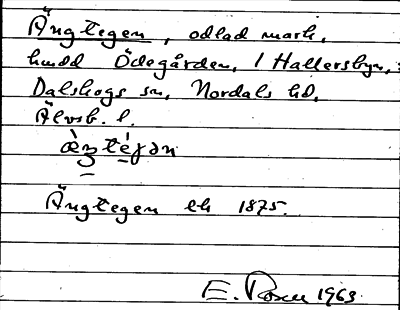 Ängtegen, odlad mark,
hmdd Ödegården, 1 Hallersbyn,
Dalskogs sn, Nordals hd,
Älvsb. l.
Ängtegen ek 1875.
E. Rosell 1963